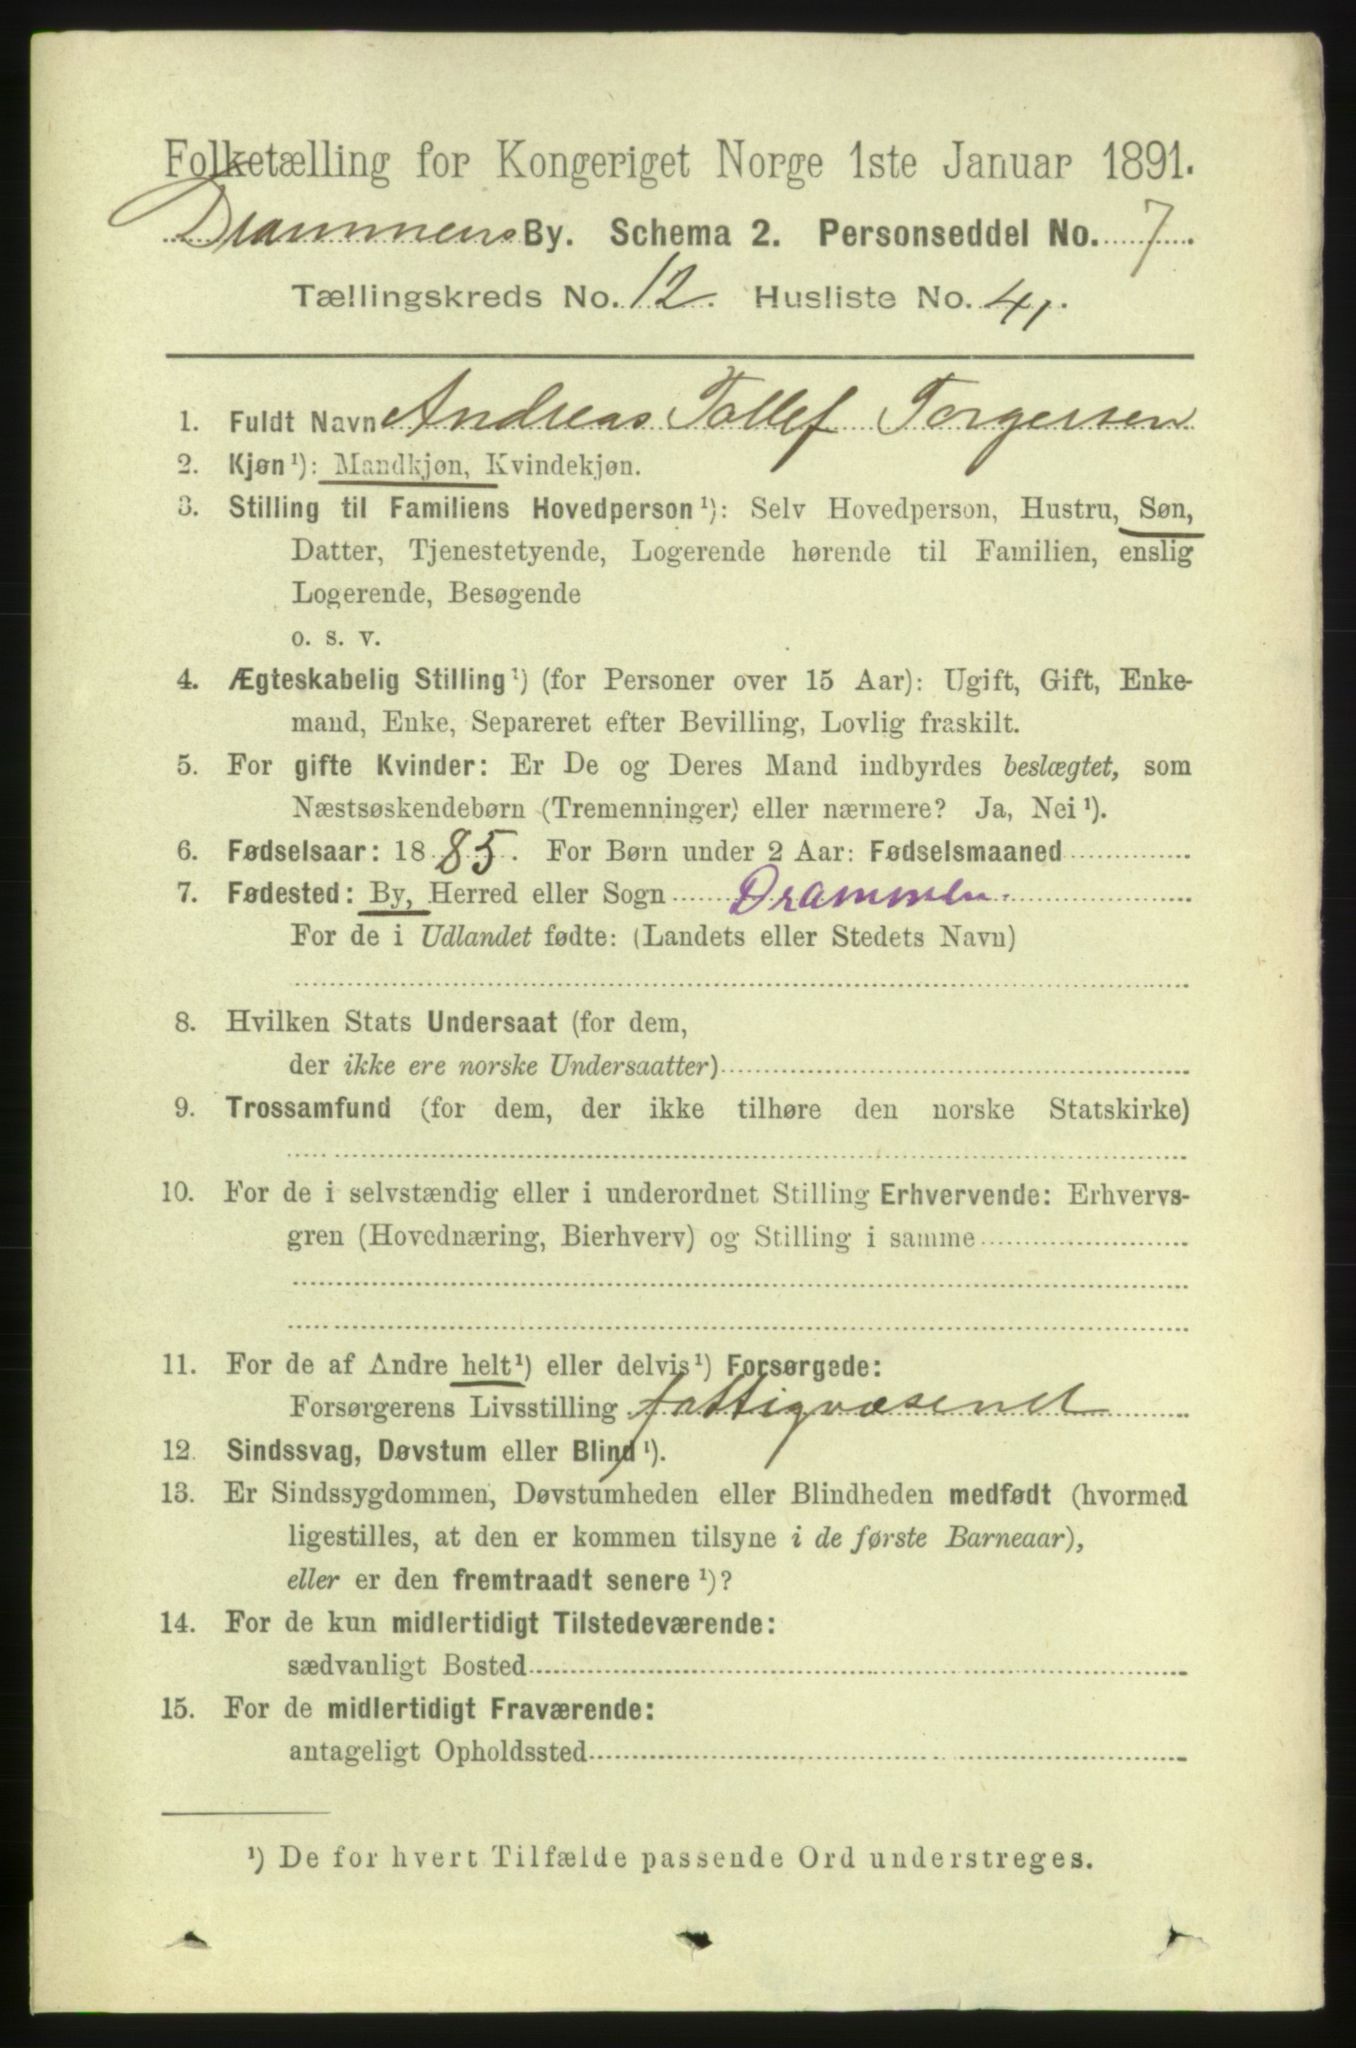 Folketælling for Kongeriget Norge 1ste Januar 1891.
Drammens By. Schema 2. Personseddel No. 7
Tællingskreds No. 12. Husliste No. 4,
1. Fuldt Navn Andreas Tollef Torgersen
2. Kjøn ¹): Mandkjøn, Kvindekjøn.
3. Stilling til Familiens Hovedperson ¹): Selv Hovedperson, Hustru, Søn,
Datter, Tjenestetyende, Logerende hørende til Familien, enslig
Logerende, Besøgende
o. s. v.
4. Ægteskabelig Stilling ¹) (for Personer over 15 Aar): Ugift, Gift, Enke-
mand, Enke, Separeret efter Bevilling, Lovlig fraskilt.
5. For gifte Kvinder: Er De og Deres Mand indbyrdes beslægtet, som
Næstsøskendebørn (Tremenninger) eller nærmere? Ja, Nei ¹).
6. Fødselsaar: 1885. For Børn under 2 Aar: Fødselsmaaned
7. Fødested: By, Herred eller Sogn Drammen.
For de i Udlandet fødte: (Landets eller Stedets Navn)
8. Hvilken Stats Undersaat (for dem,
der ikke ere norske Undersaatter)
9. Trossamfund (for dem, der ikke tilhøre den norske Statskirke)
10. For de i selvstændig eller i underordnet Stilling Erhvervende: Erhvervs-
gren (Hovednæring, Bierhverv) og Stilling i samme
11. For de af Andre helt ¹) eller delvis ¹) Forsørgede:
Forsørgerens Livsstilling fattigvæsenet
12. Sindssvag, Døvstum eller Blind ¹).
13. Er Sindssygdommen, Døvstumheden eller Blindheden medfødt (hvormed
ligestilles, at den er kommen tilsyne i de første Barneaar),
eller er den fremtraadt senere ¹)?
14. For de kun midlertidigt Tilstedeværende:
sædvanligt Bosted
15. For de midlertidigt Fraværende:
antageligt Opholdssted
¹) De for hvert Tilfælde passende Ord understreges.